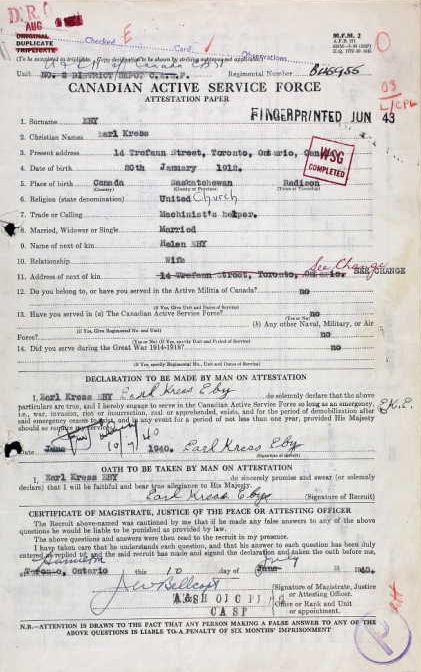 D.R.(
AUG
ORIGINAL
DUPLICATE
TRIPLICATE
Checked E Card ✓ Observations
M.F.M. 2
(To be completed in triplicate.
Unit NO. 2 DISTRICT DEPOT C.A.S.F. Regimental Number B45955
CANADIAN ACTIVE SERVICE FORCE
ATTESTATION PAPER
FINGERPRINTED JUN 43
1. Surname EBY
2. Christian Names Earl Kress
3. Present address 14 Trefann Street, Toronto, Ontario, Canada
WSG
COMPLETED
4. Date of birth 20th January 1912.
5. Place of birth Canada Saskatchewan Radison
(Country) (County or Province) (Town or Township)
6. Religion (state denomination) United Church
7. Trade or Calling Machinist's helper.
8. Married, Widower or Single Married
9. Name of next of kin Helen EBY
10. Relationship Wife
See Change
11. Address of next of kin 14 Trefann Street, Toronto, Ontario. SEE CHANGE
12. Do you belong to, or have you served in the Active Militia of Canada? no
(If Yes, Give Unit and Dates of Service)
13. Have you served in (a) The Canadian Active Service Force? no
(Yes or No)
(If Yes, Give Regimental No. and Unit) (b) Any other Naval, Military, or Air
Force? no
(Yes or No) (If Yes, specify Unit and Period of Service)
14. Did you serve during the Great War 1914-1918? no
(If Yes, specify Regimental No., Unit and Dates of Service)
DECLARATION TO BE MADE BY MAN ON ATTESTATION
I, Earl Kress EBY Earl Kress Eby do solemnly declare that the above
particulars are true, and I hereby engage to serve in the Canadian Active Service Force so long as an emergency, E.K.E.
i.e., war, invasion, riot or insurrection, real or apprehended, exists, and for the period of demobilization after
said emergency ceases to exist, and in any event for a period of not less than one year, provided His Majesty
should so require my services.
10/7/40
June 1940. Earl Kress Eby
(Signature of Recruit)
OATH TO BE TAKEN BY MAN ON ATTESTATION
I, Earl Kress EBY do sincerely promise and swear (or solemnly
declare) that I will be faithful and bear true allegiance to His Majesty.
Earl Kress Eby (Signature of Recruit)
CERTIFICATE OF MAGISTRATE, JUSTICE OF THE PEACE OR ATTESTING OFFICER
The Recruit above-named was cautioned by me that if he made any false answers to any of the above
questions he would be liable to be punished as provided by law.
The above questions and answers were then read to the recruit in my presence.
I have taken care that he understands each question, and that his answer to each question has been duly
entered as replied to, and the said recruit has made and signed the declaration and taken the oath before me,
Hamilton July
at Toronto, Ontario this 10 day of June 1940.
(Signature of Magistrate, Justice
or Attesting Officer.
Office or Rank and Unit
or appointment.
CASF
N.B.—ATTENTION IS DRAWN TO THE FACT THAT ANY PERSON MAKING A FALSE ANSWER TO ANY OF THE
ABOVE QUESTIONS IS LIABLE TO A PENALTY OF SIX MONTHS' IMPRISONMENT
P